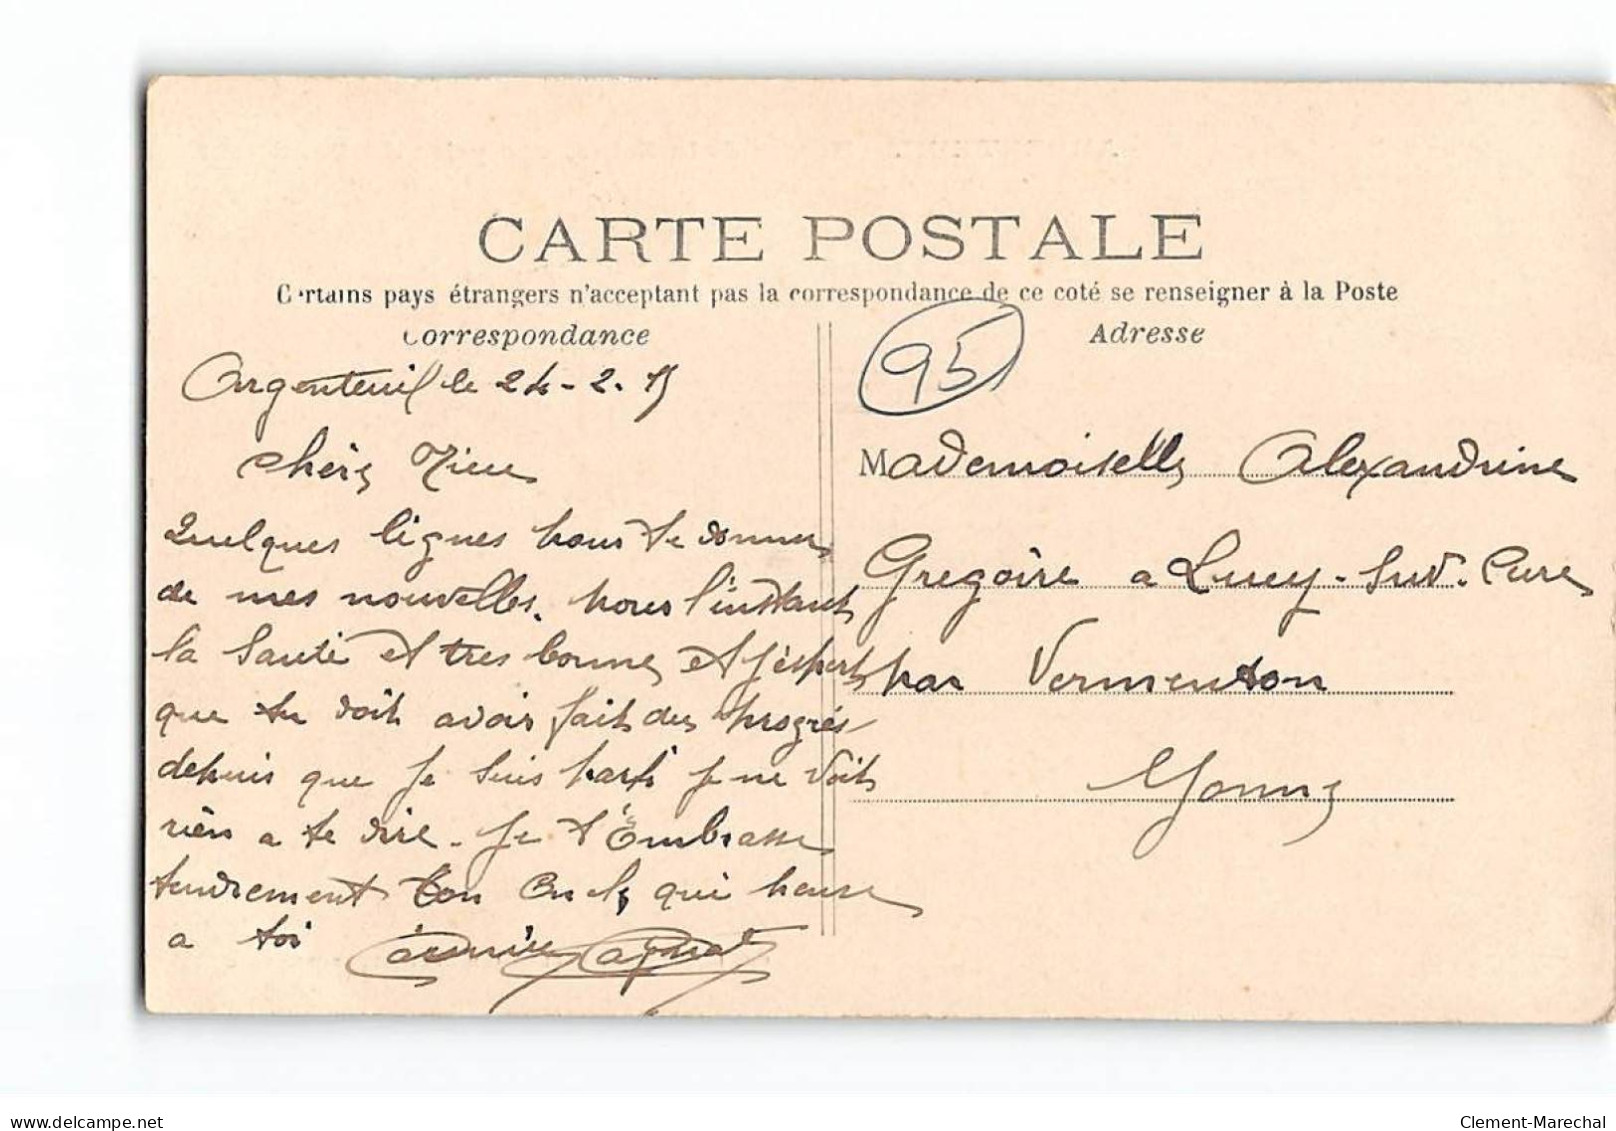 CARTE POSTALE
Certains pays étrangers n'acceptant pas la correspondance de ce coté se renseigner à la Poste
Correspondance
Adresse
95
Argenteuil le 24-2.15
chère Niece
Quelques lignes pour te donner
de mes nouvelles. pour l'instant
la santé et tres bonne et j'espert
que tu doit avoir fait des progrés
depuis que je suis parti je ne voit
rièn a te dire. Je t'Embrasse
tendrement ton Oncle qui pense
a toi
Mademoiselle Alexandrine
Gregoire a Lucy-sur-Cure
par Vermenton
Yonne
Clement-Marechal
www.delcampe.net